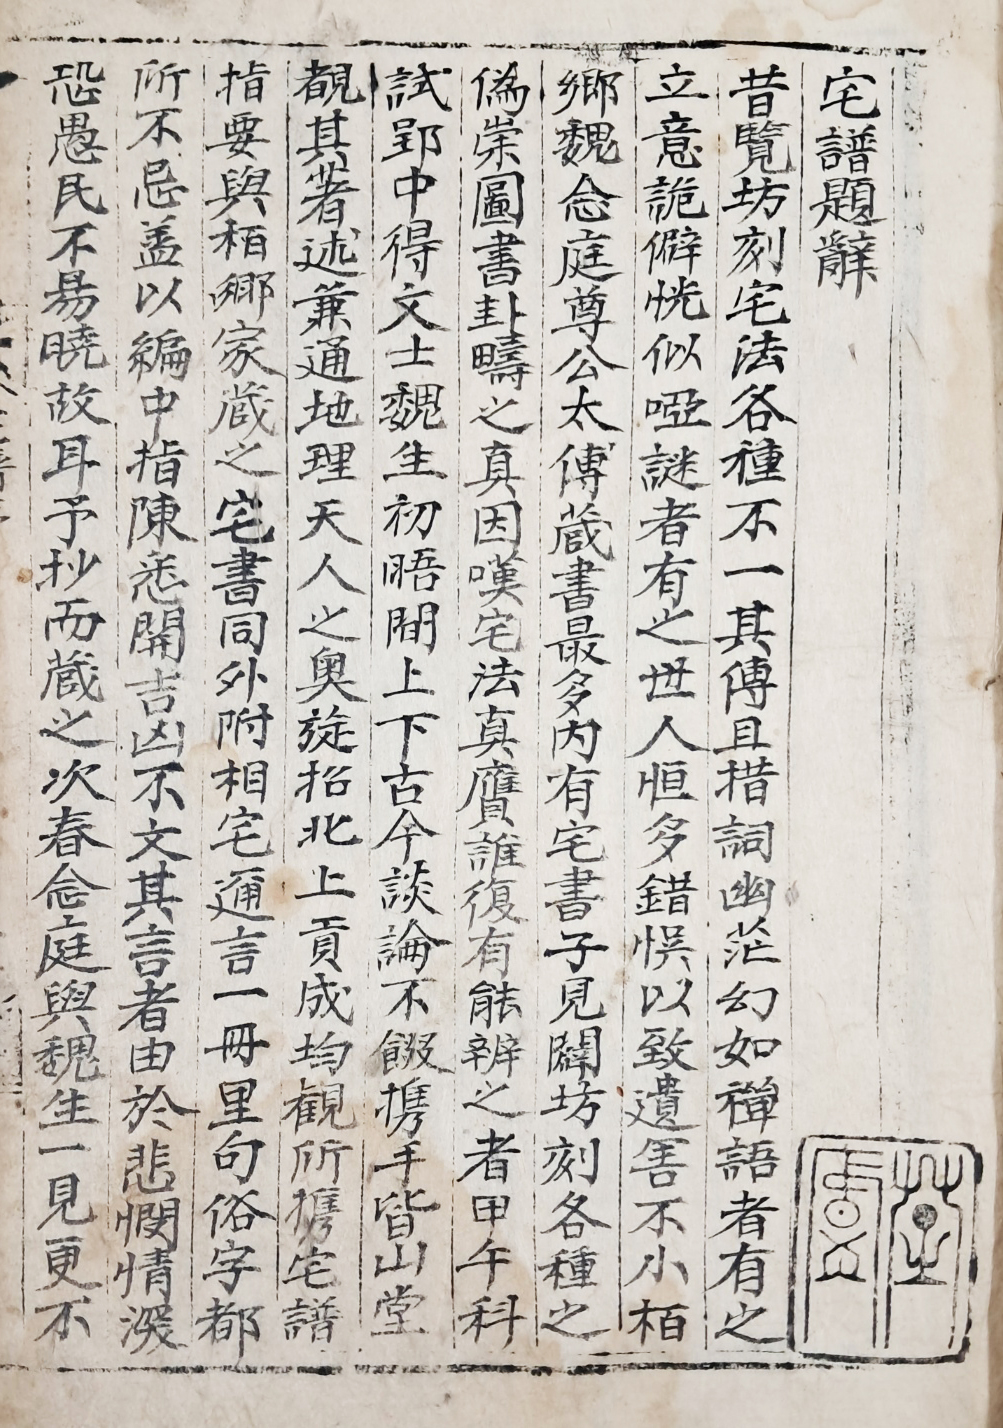 宅譜題辭
昔覽坊刻宅法各種不一其傳且措詞幽茫幻如禪語者有之
立意詭僻恍似啞謎者有之世人恒多錯悞以致遺害不小栢
鄉魏念庭尊公太傅蔵書最多内有宅書子見闢坊刻各種之
偽崇圖書卦疇之真因嘆宅法真贋誰復有能辨之者甲午科
試郢中得文士魏生初晤間上下古今談論不餒携手皆山堂
覩其著述兼通地理天人之奥旋招北上貢成均觀所携宅譜
指要與栢鄉家蔵之宅書同外附相宅邇言一冊里句俗字都
所不忌盖以編中指陳悉關吉凶不文其言者由於悲憫情深
恐愚民不易曉故耳予抄而蔵之次春念庭與魏生一見更不